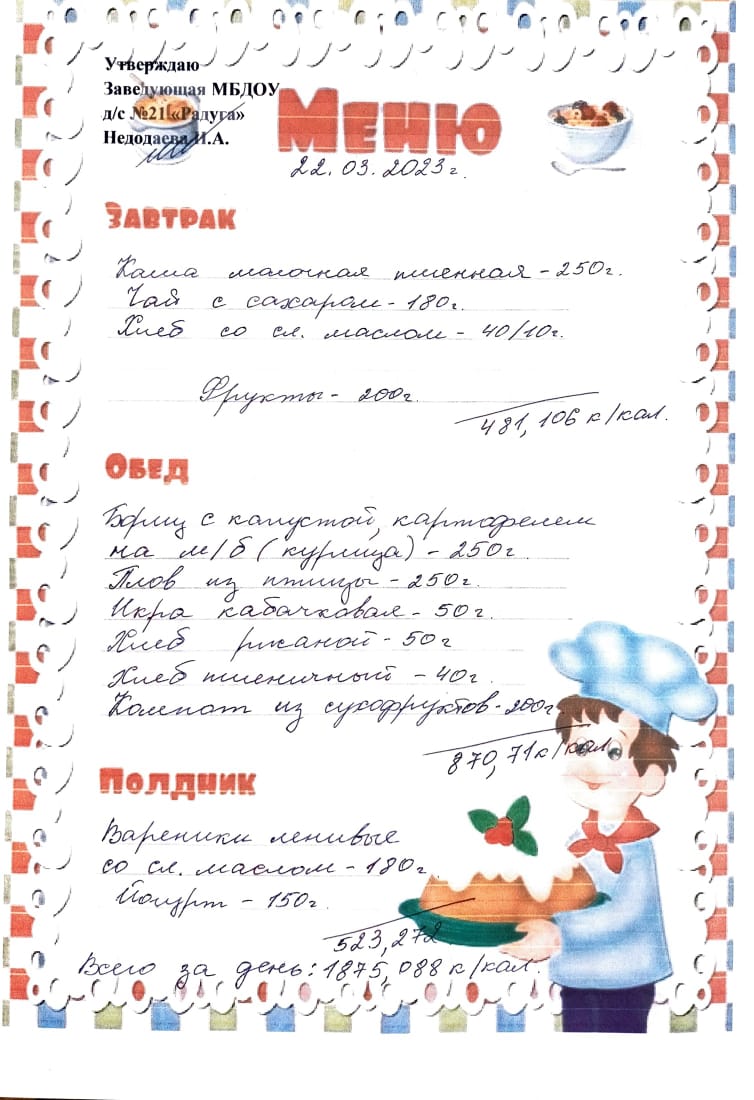 Утверждаю
Заведующая МБДОУ
д/с №21 «Радуга»
Недодаева И.А.
Меню
22.03.2023г.
Завтрак
Каша молочная пшенная - 250г.
Чай с сахаром - 180г.
Хлеб со сл. маслом - 40/10г.
Фрукты - 200г.
481,106 к/кал.
Обед
Борщ с капустой, картофелем
на м/б (курица) - 250г.
Плов из птицы - 250г.
Икра кабачковая - 50г.
Хлеб ржаной - 50г
Хлеб пшеничный - 40г.
Компот из сухофруктов - 200г
870,71 к/кал
Полдник
Вареники ленивые
со сл. маслом - 180г.
Йогурт - 150г.
523,272
Всего за день: 1875,088 к/кал.